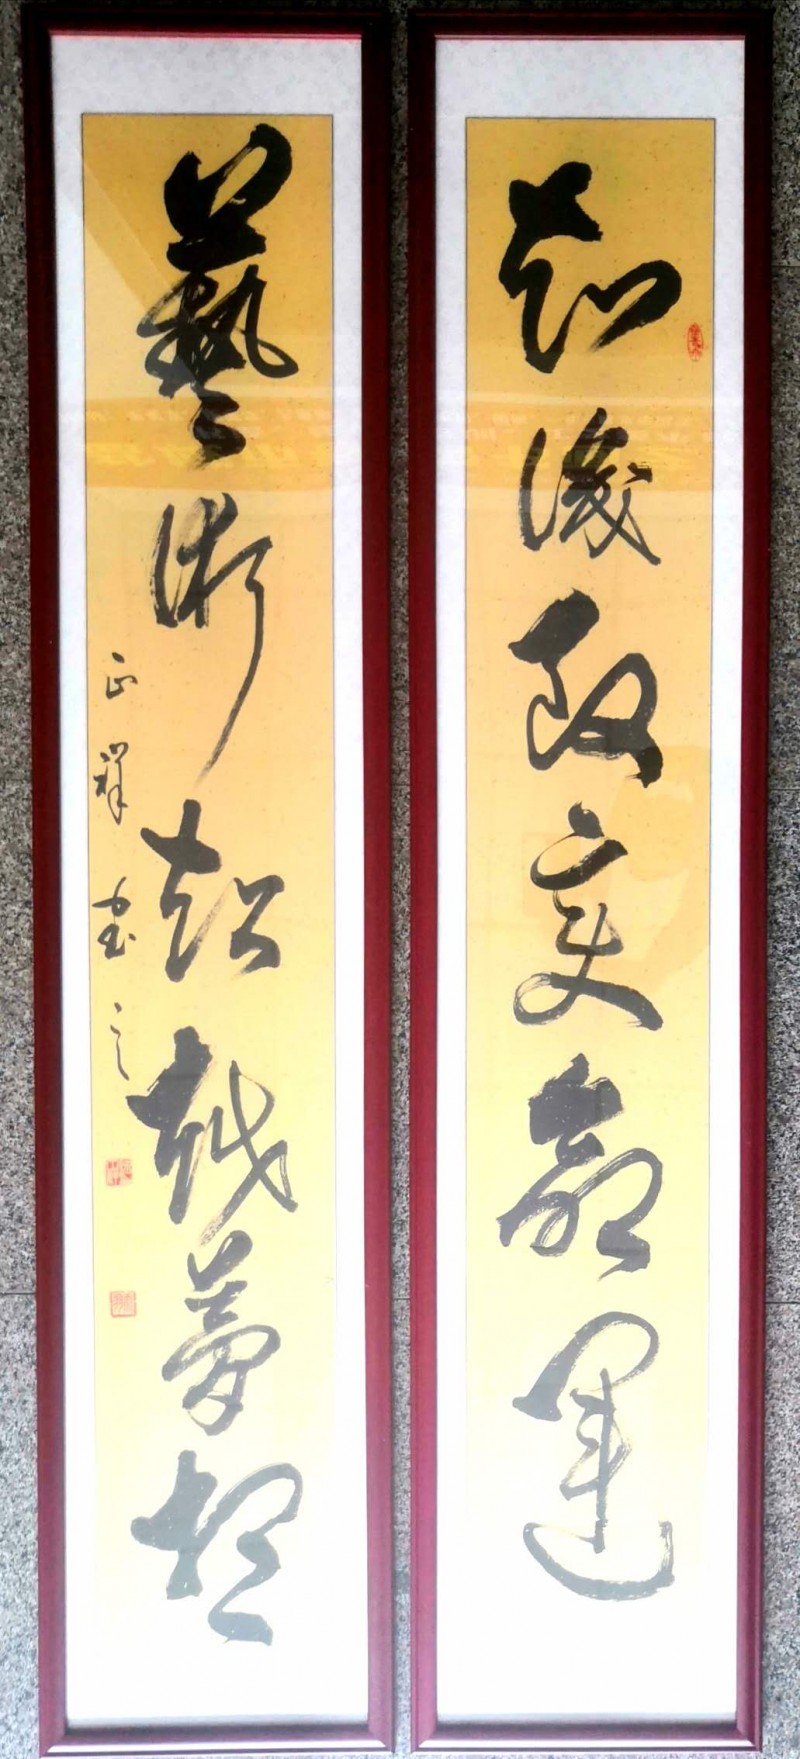 知識改變命運
藝術超越夢想
正祥書之